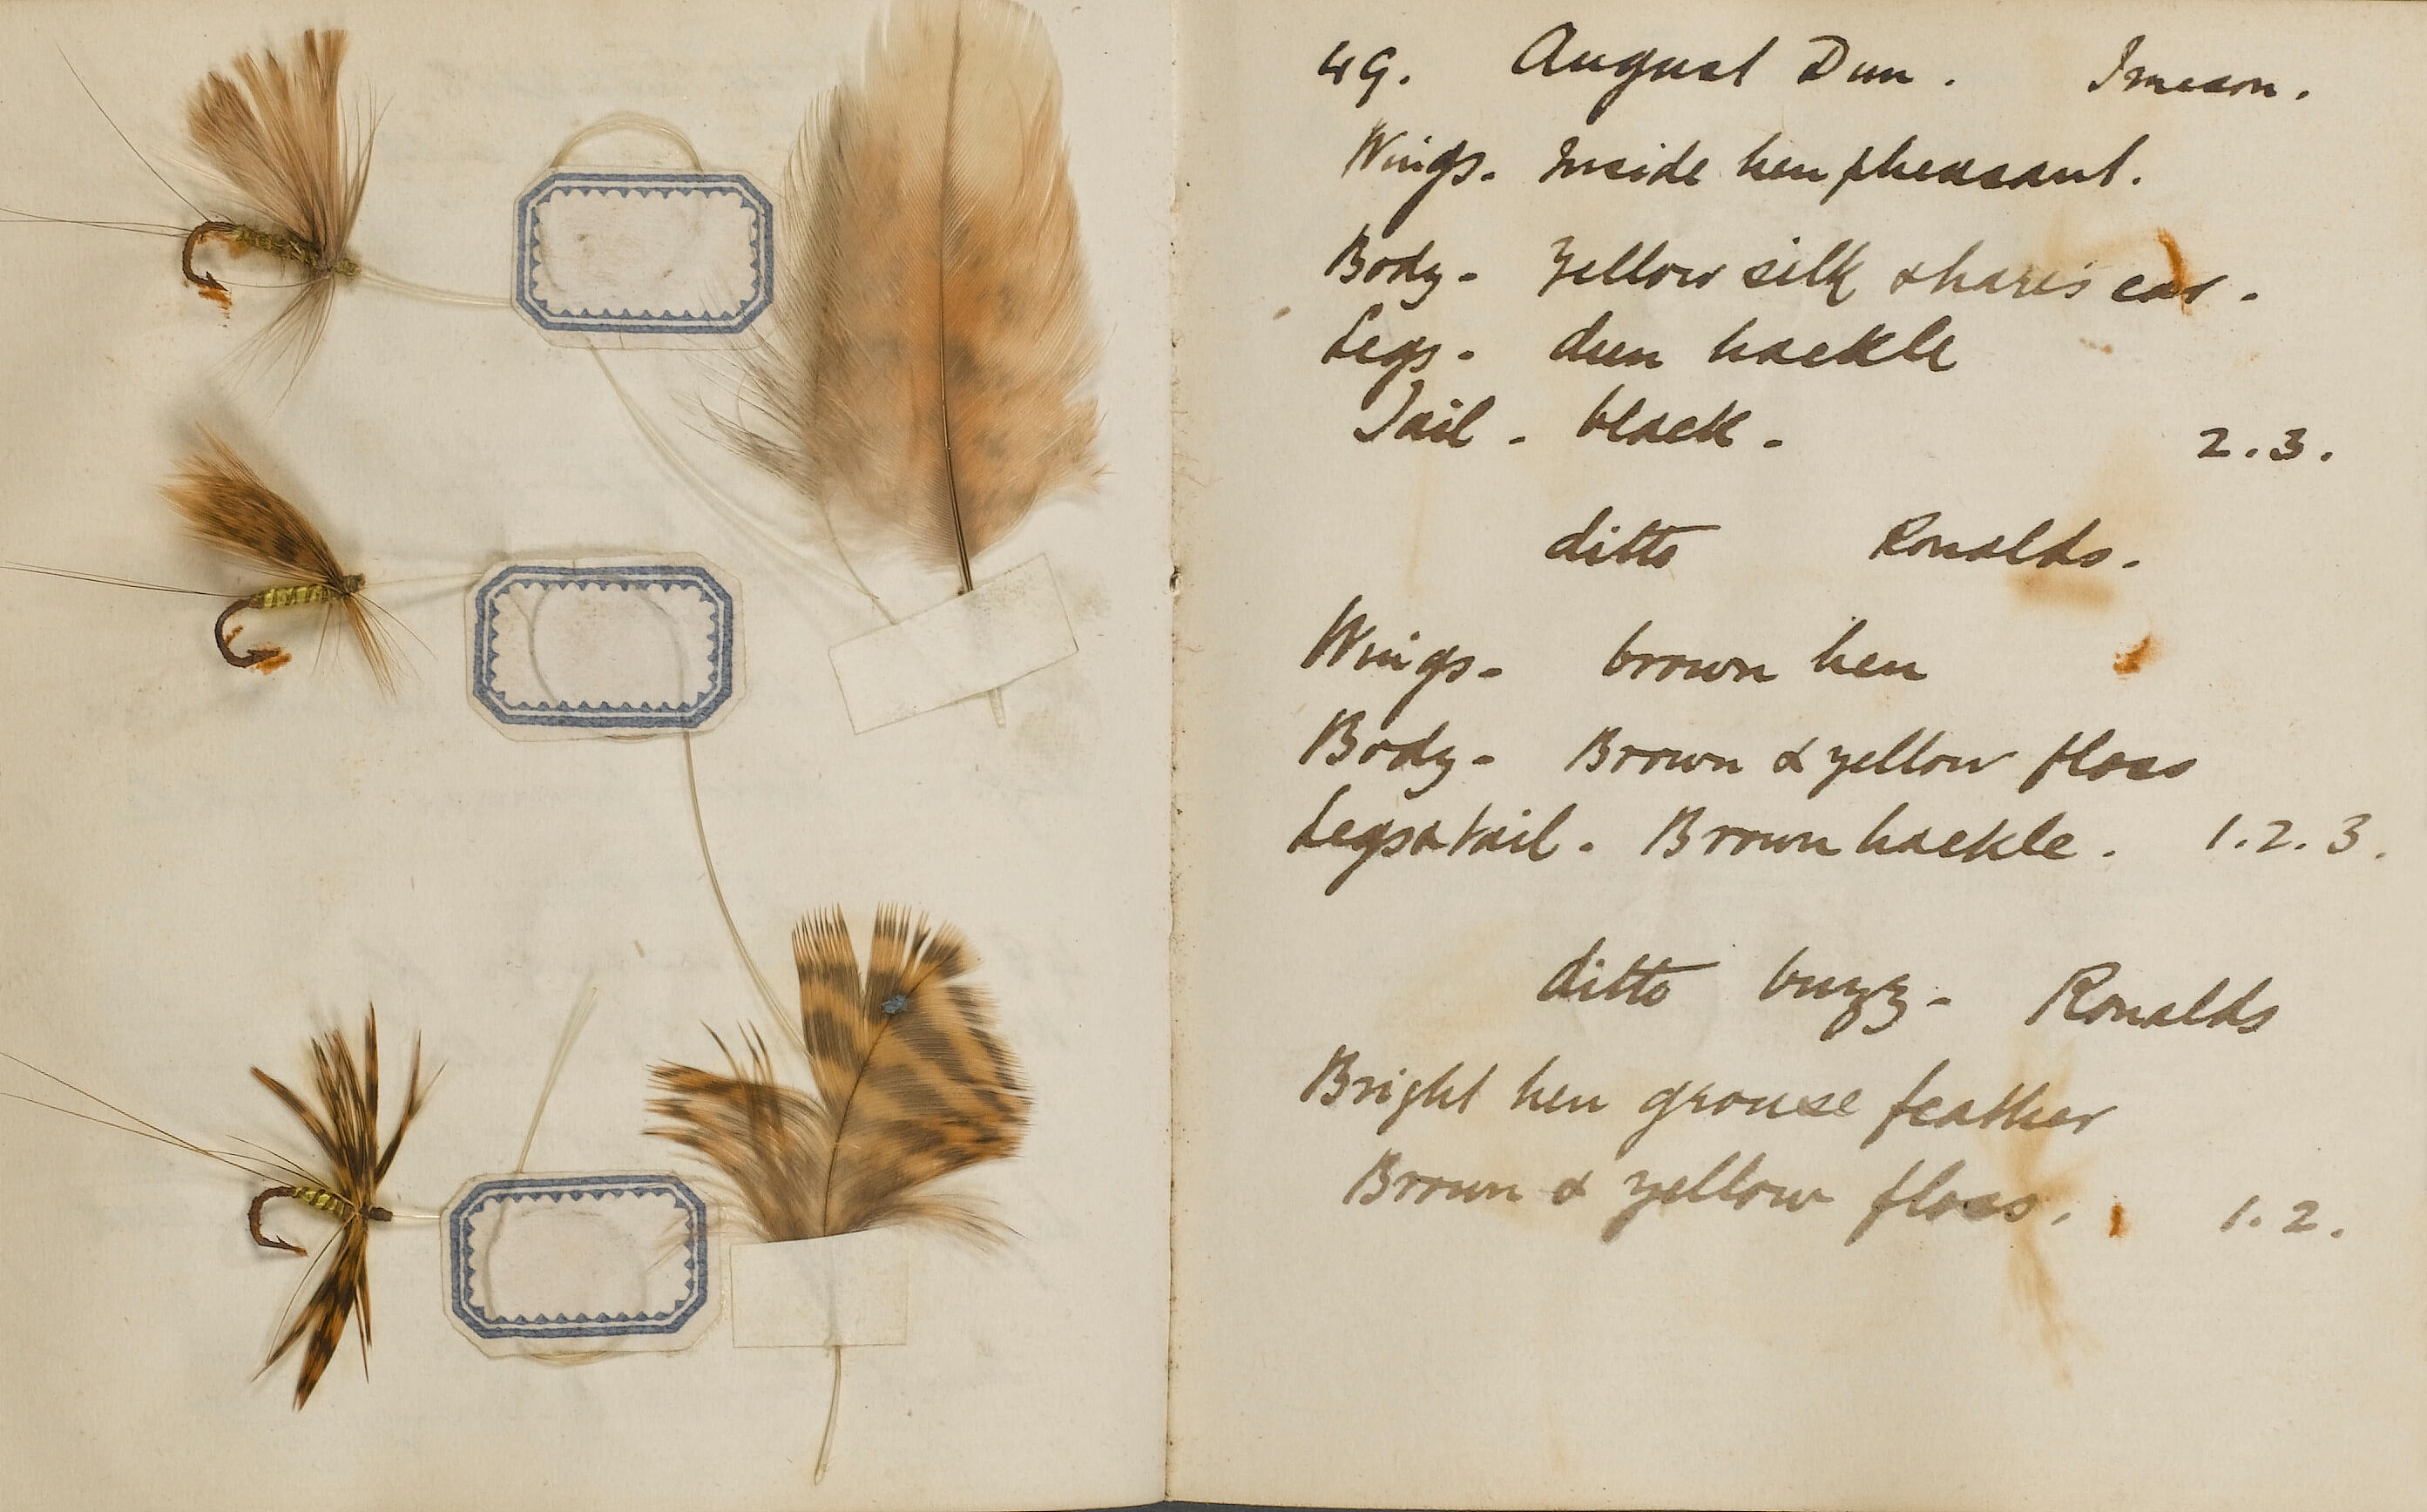 49. August Dun. Imeson.
Wings. Inside hen pheasant.
Body - Yellow silk & hare's ear.
Legs - dun hackle
Tail - black - 2.3.
ditto Ronalds.
Wings - brown hen
Body - Brown & yellow floss
Legs & tail. Brown hackle. 1.2.3.
ditto buzz - Ronalds
Bright hen grouse feather
Brown & yellow floss. 1.2.